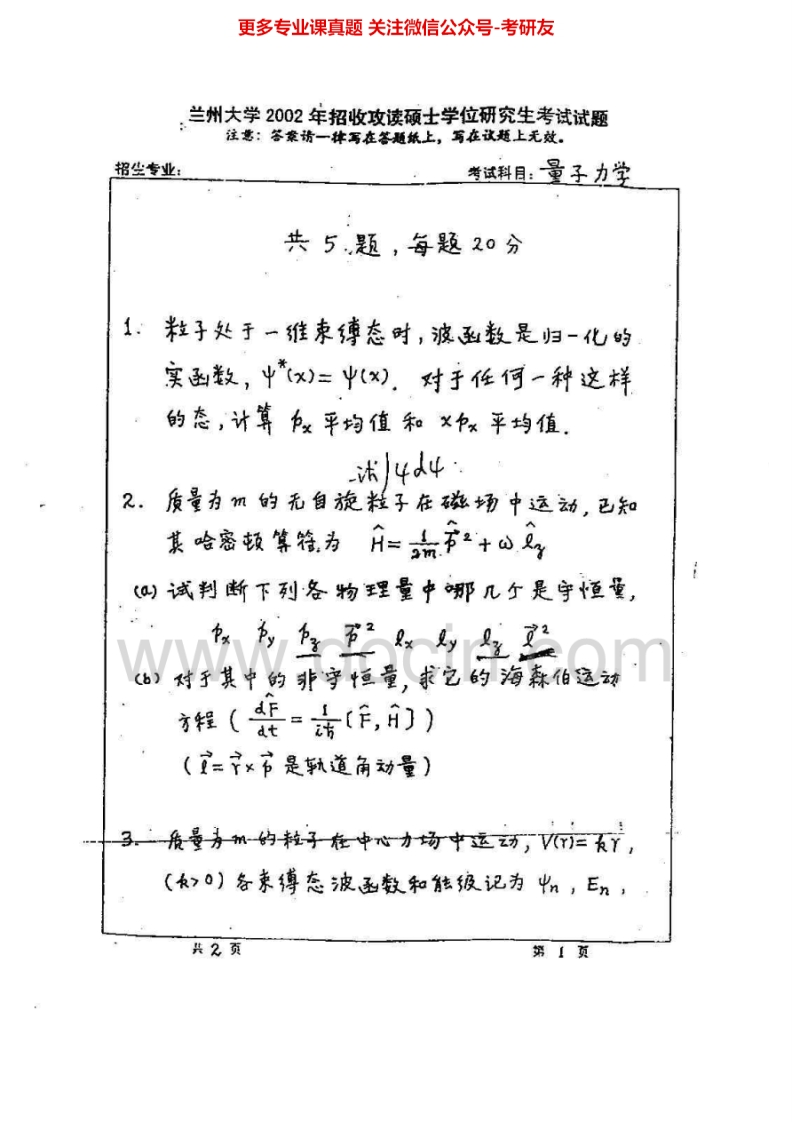 更多专业课真题 关注微信公众号-考研友
兰州大学 2002 年招收攻读硕士学位研究生考试试题
注意：答案请一律写在答题纸上，写在试题上无效。
招生专业： 考试科目：量子力学
共 5 题，每题 20 分
1. 粒子处于一维束缚态时，波函数是归一化的
实函数，ψ*(x)=ψ(x)．对于任何一种这样
的态，计算 pₓ 平均值和 xpₓ 平均值．
-iℏ∫ψdψ
2. 质量为 m 的无自旋粒子在磁场中运动，已知
其哈密顿算符为 Ĥ= 1/2m p̂⃗² + ω l̂z
(a) 试判断下列各物理量中哪几个是守恒量，
pₓ py pz p⃗² lₓ ly lz l⃗²
www.docin.com
(b) 对于其中的非守恒量，求它的海森伯运动
方程 ( dF̂/dt = 1/iℏ [F̂, Ĥ] )
( l⃗ = r⃗×p⃗ 是轨道角动量)
3. 质量为 m 的粒子在中心力场中运动，V(r)= kr，
(k>0) 各束缚态波函数和能级记为 ψn，En，
共 2 页 第 1 页